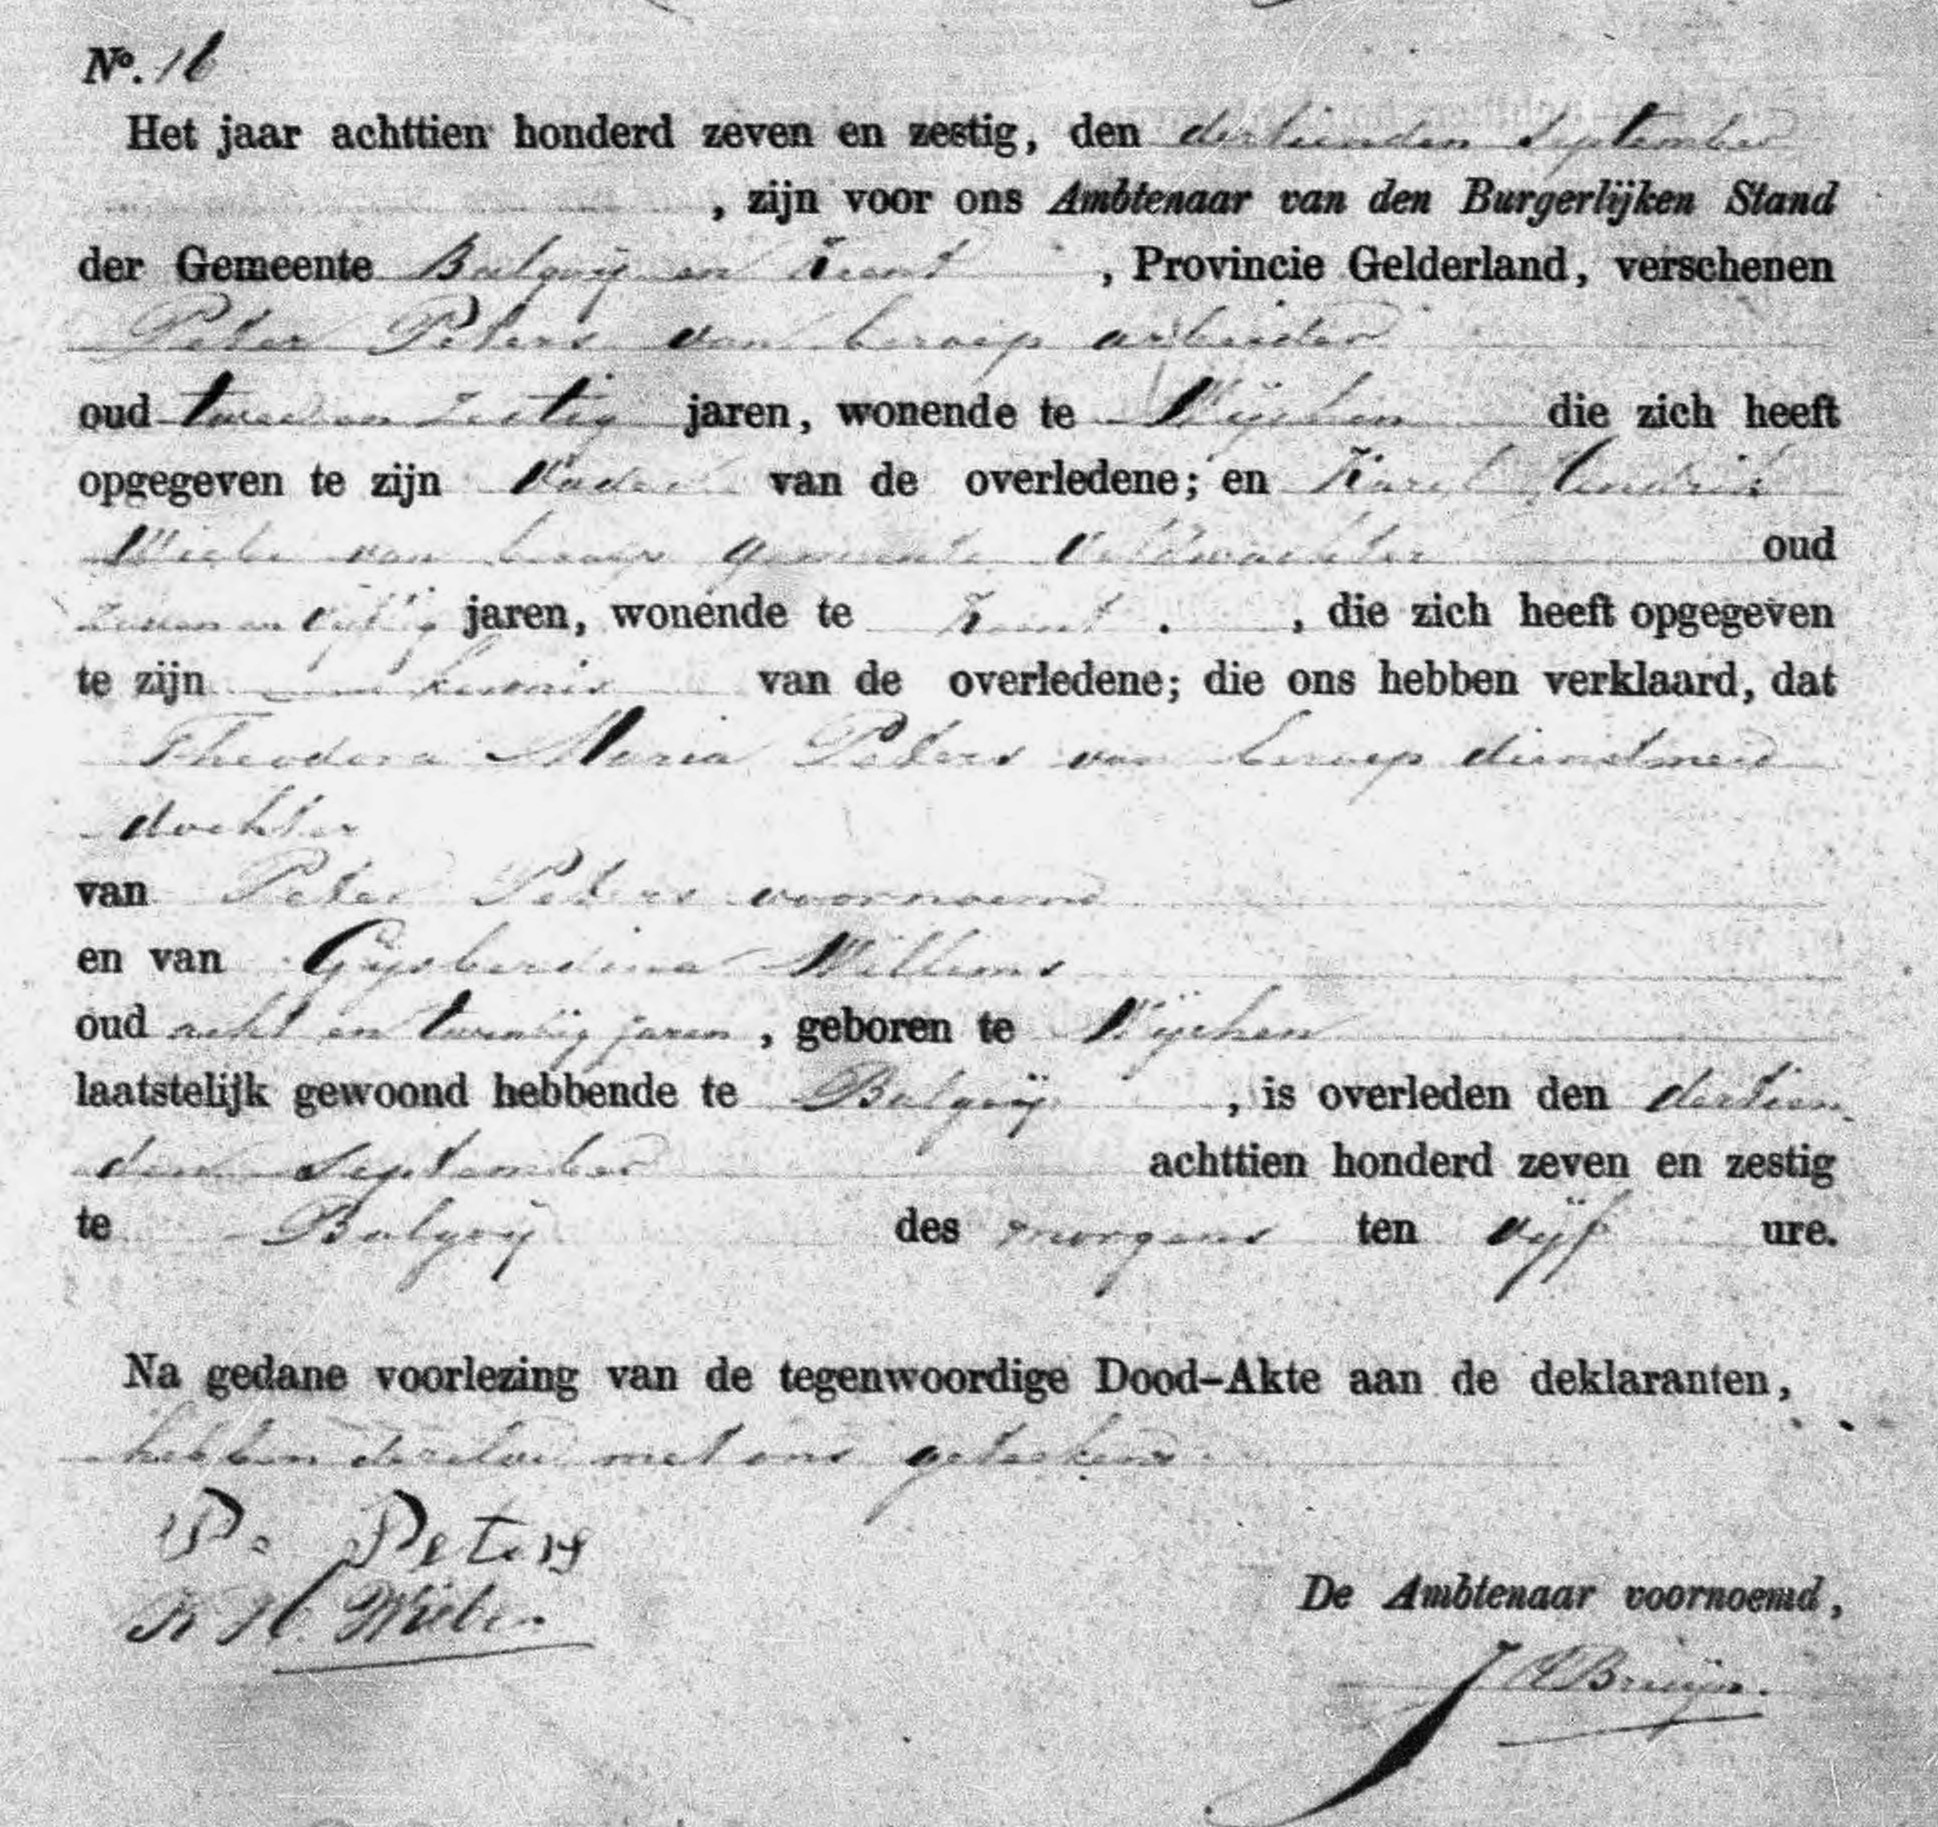 No. 16
Het jaar achttien honderd zeven en zestig, den dertienden September
, zijn voor ons Ambtenaar van den Burgerlijken Stand
der Gemeente Balgoij en Keent , Provincie Gelderland, verschenen
Peter Peters van beroep arbeider
oud twee en zestig jaren, wonende te Wijchen die zich heeft
opgegeven te zijn Vader van de overledene; en Karel Hendrik
van beroep gemeente Veldwachter oud
zeven en vijftig jaren, wonende te Keent , die zich heeft opgegeven
te zijn kennis van de overledene; die ons hebben verklaard, dat
Theodora Maria Peters van beroep dienstmeid
dochter
van Peter Peters voornoemd
en van Gijsberdina Willems
oud acht en twintig jaren , geboren te Wijchen
laatstelijk gewoond hebbende te Balgoij , is overleden den dertien
den September achttien honderd zeven en zestig
te Balgoij des morgens ten vijf ure.
Na gedane voorlezing van de tegenwoordige Dood-Akte aan de deklaranten,
hebben dezelve met ons geteekend
P. Peters
K H.
De Ambtenaar voornoemd,
Bruijn.